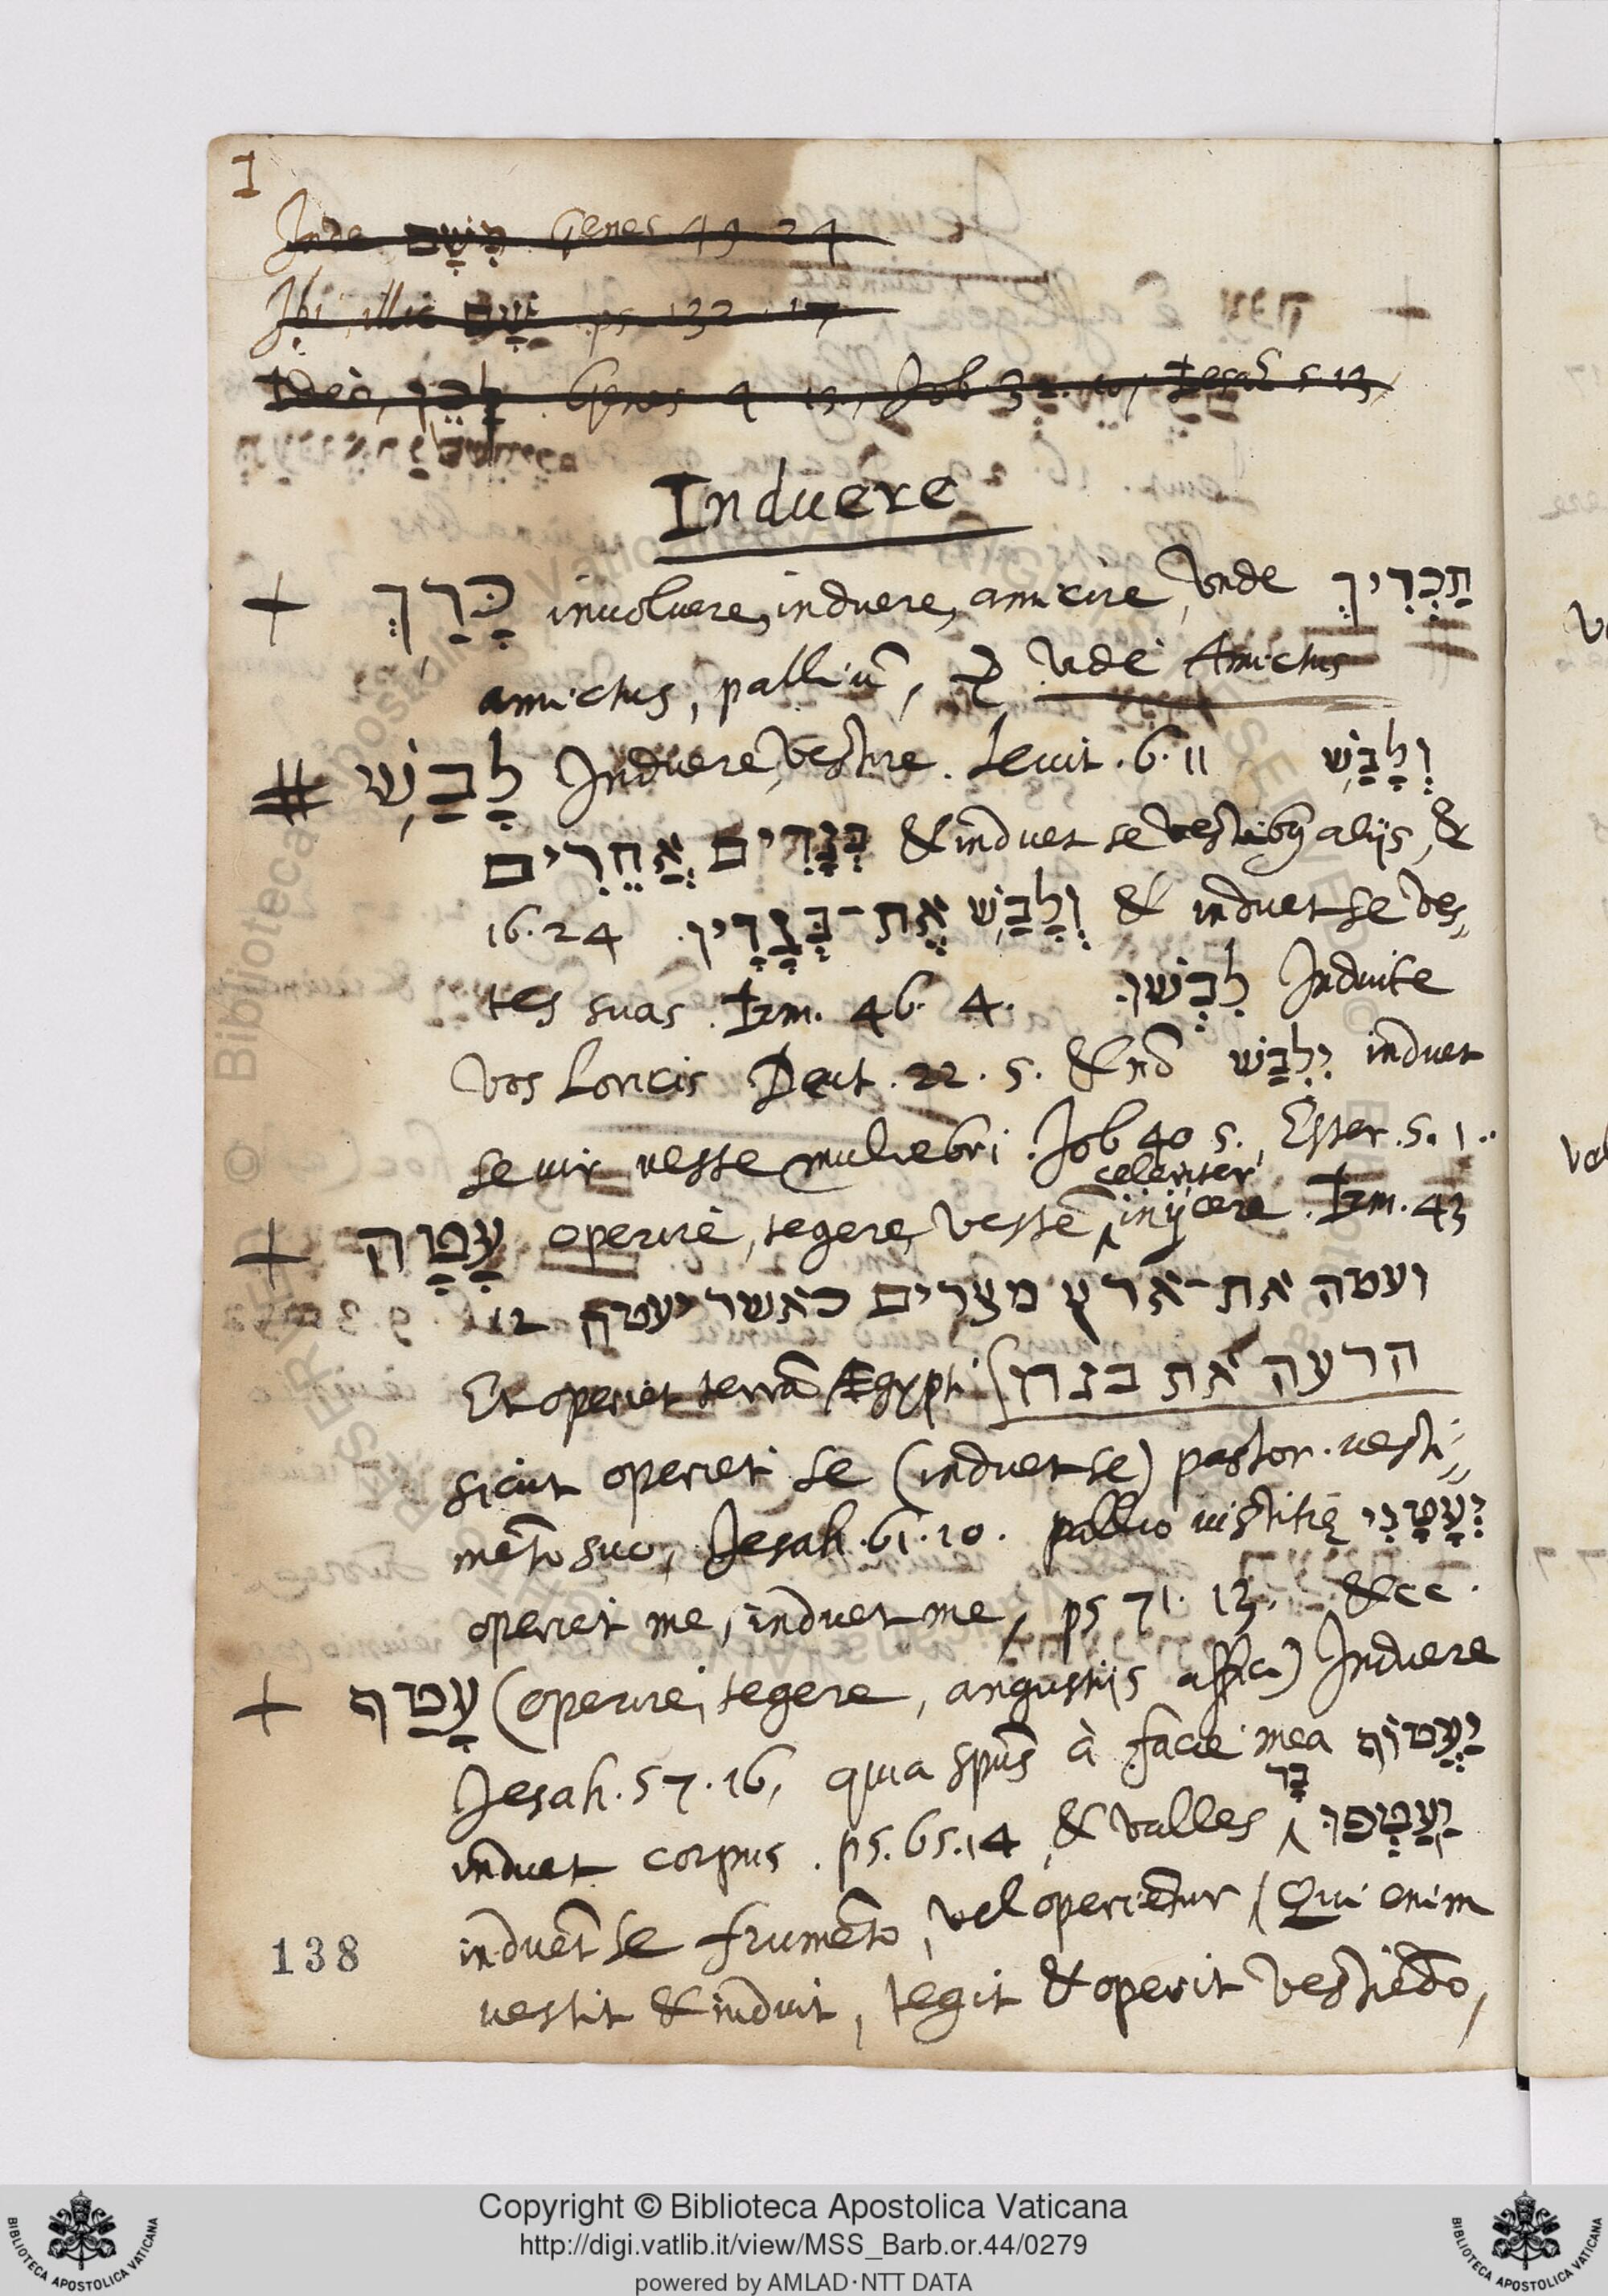 I
Inde מִשָּׁם Genes 49 24
Ibi, illic שָׁם ps. 132. 17
Ideò, לָכֵן Genes 4. 15., Job 32. 10, Iesah 5 13,
Induere
+ כָּרַךְ inuoluere, induere, amicire, vnde תַכְרִיךְ
amictus, palliũ, vide Amictus
# לָבַשׁ Induere, vestire. Leuit. 6. 11 וְלָבַשׁ
בְּגָדִים אֲחֵרִים & induet se vestibꝰ alijs, &
16. 24 וְלָבַשׁ אֶת־בְּגָדָיו. & induet se ves„
tes suas. Irm. 46. 4. לִבְשׁוּ Induite
vos loricis Deut. 22. 5. & nõ יִלְבַּשׁ induet
se uir ueste muliebri. Job 40 5., Ester. 5. 1..
+ עָטָה operire, tegere, vestẽ ‸celeriter inijcere. Irm. 43
ועטה את־ארץ מצרים כאשר יעטה 12
Et operiet terrã Ægypti הרעה את בגדו
sicut operiet se (induet se) pastor. uesti„
mẽto suo, Jesah. 61. 10. pallio iustitię יְעָטָנִי
operiet me, induet me, ps 71. 13, &cc.
+ עָטַף (operire, tegere, angustijs affici) Induere
Jesah. 57. 16, quia spũs à facie mea יַעֲטוֹף
induet corpus. ps. 65. 14, & valles ‸בָר יַעַטְפוּ
induẽt se frumẽto, vel operiẽtur (Qui enim
138 uestit & induit, tegit & operit vestiẽdo,
Copyright © Biblioteca Apostolica Vaticana
http://digi.vatlib.it/view/MSS_Barb.or.44/0279
powered by AMLAD·NTT DATA
BIBLIOTECA APOSTOLICA VATICANA
BIBLIOTECA APOSTOLICA VATICANA